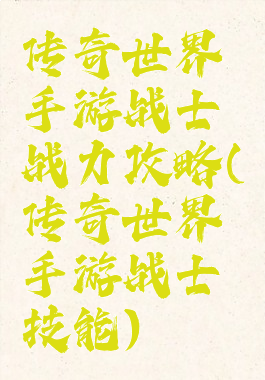 传奇世界
手游战士
战力攻略(
传奇世界
手游战士
技能)